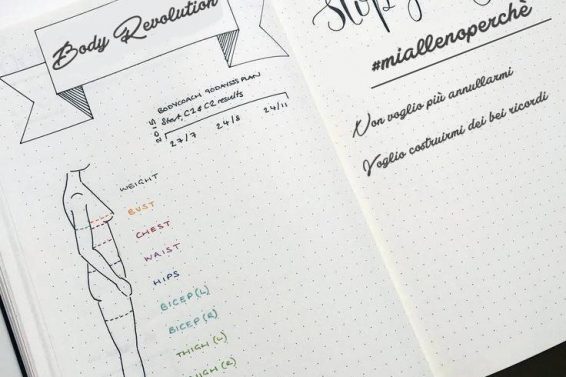 Body Revolution
BODYCOACH 90DAYSSS PLAN
Start, C1 & C2 results
27/7 24/8 24/11
WEIGHT
BUST
CHEST
WAIST
HIPS
BICEP (L)
BICEP (R)
THIGH (L)
THIGH (R)
#miallenoperchè
Non voglio più annullarmi
Voglio costruirmi dei bei ricordi